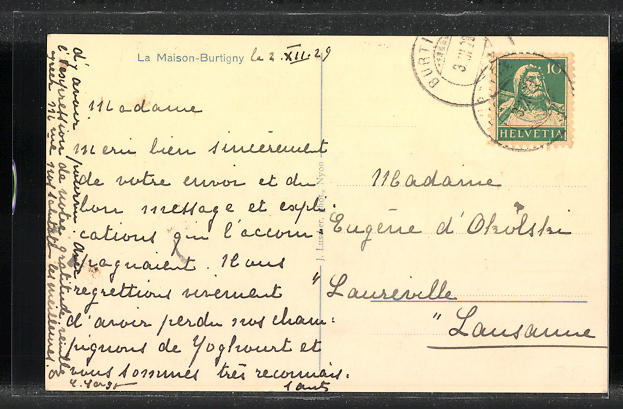 La Maison-Burtigny le 2.XII.29
Madame
Merci bien sincèrement
de votre envoi et du
bon message et expli
cations qui l'accom
pagnaient. Nous
regrettions vivement
d'avoir perdu nos cham:
pignons de Yoghourt et
nous sommes très reconnais:
sants
d'avoir pu
l'expression de notre gratitude
J. Nyon
BURTI
10
HELVETIA
Madame
Eugène d'Okolski
"Laureville"
Lausanne